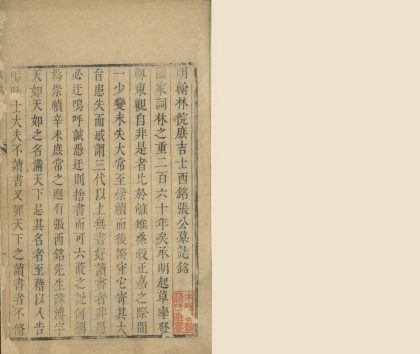 明翰林院庶吉士西銘張公墓誌銘
國家詞林之重二百六十年矣承明起草率發
東觀自非是者比於雕蟲蔡設正嘉之際間
一少變未失大常至崇禎而後謹守它寄其大
音患失而感謂三代以上無書好讀書者非愚
必迂嗚呼誠愚迂則捨書而可六籔之說何稱
焉崇禎辛未庶常之選有張西銘先生諱溥字
天如天如之名滿天下忌其名者至藉以入告
嗚呼士大夫不讀書又罪天下之讀書者不脩